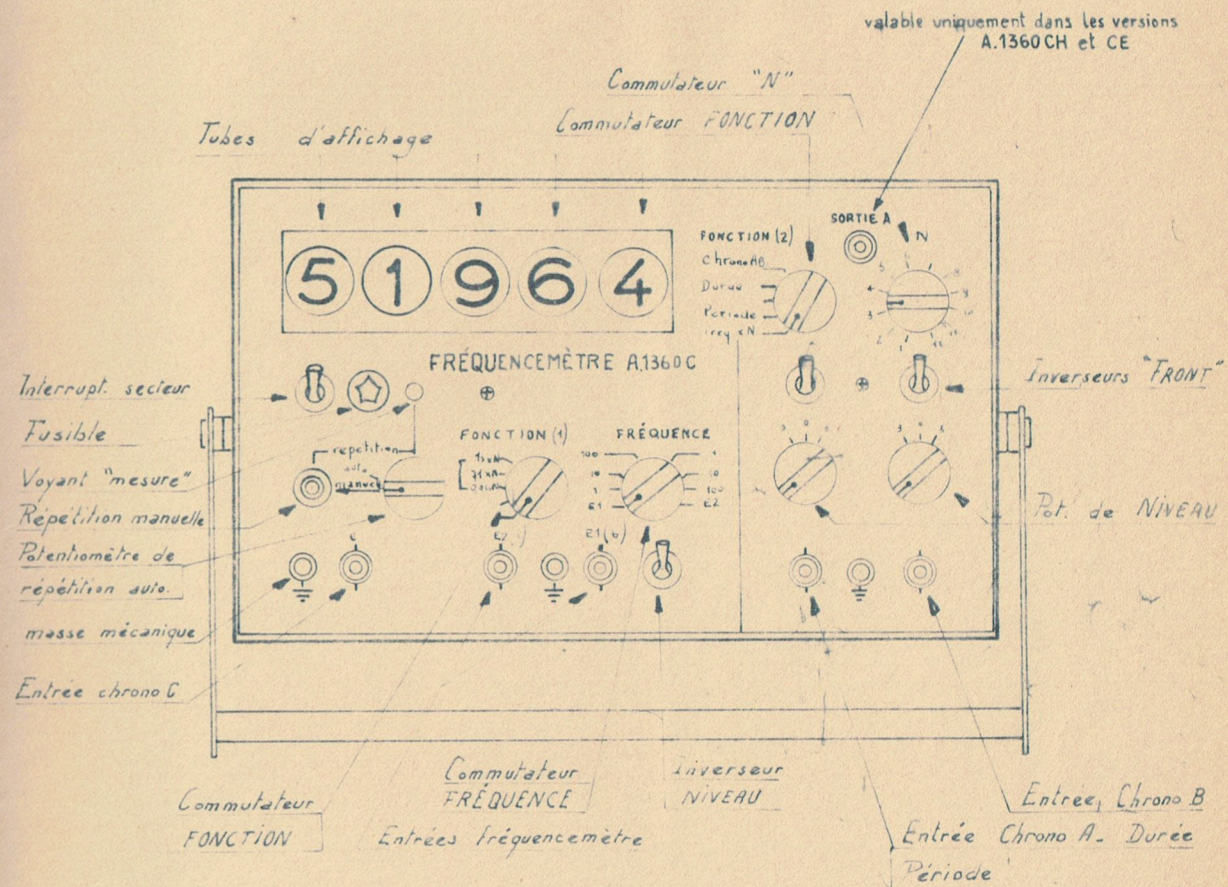 valable uniquement dans les versions
A.1360 CH et CE
Commutateur "N"
Commutateur FONCTION
Tubes d'affichage
SORTIE A
N
FONCTION (2)
Chrono AB
Durée
Période
5 1 9 6 4
FRÉQUENCEMÈTRE A.1360 C
Interrupt. secteur
Fusible
Voyant "mesure"
Répétition manuelle
Potentiomètre de
répétition auto.
masse mécanique
Entrée chrono C
repetition
auto
manuel
C
FONCTION (1)
FRÉQUENCE
100
10
1
E1
1
10
100
E2
E2
E1 (6)
Inverseurs "FRONT"
Pot. de NIVEAU
Commutateur
FONCTION
Commutateur
FRÉQUENCE
Entrées fréquencemètre
Inverseur
NIVEAU
Entrée, Chrono B
Entrée Chrono A. Durée
Période